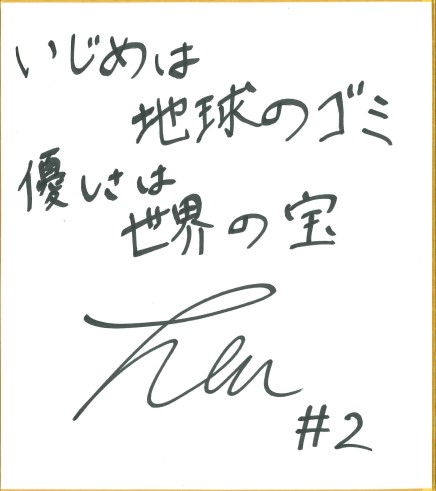 いじめは
地球のゴミ
優しさは
世界の宝
#2